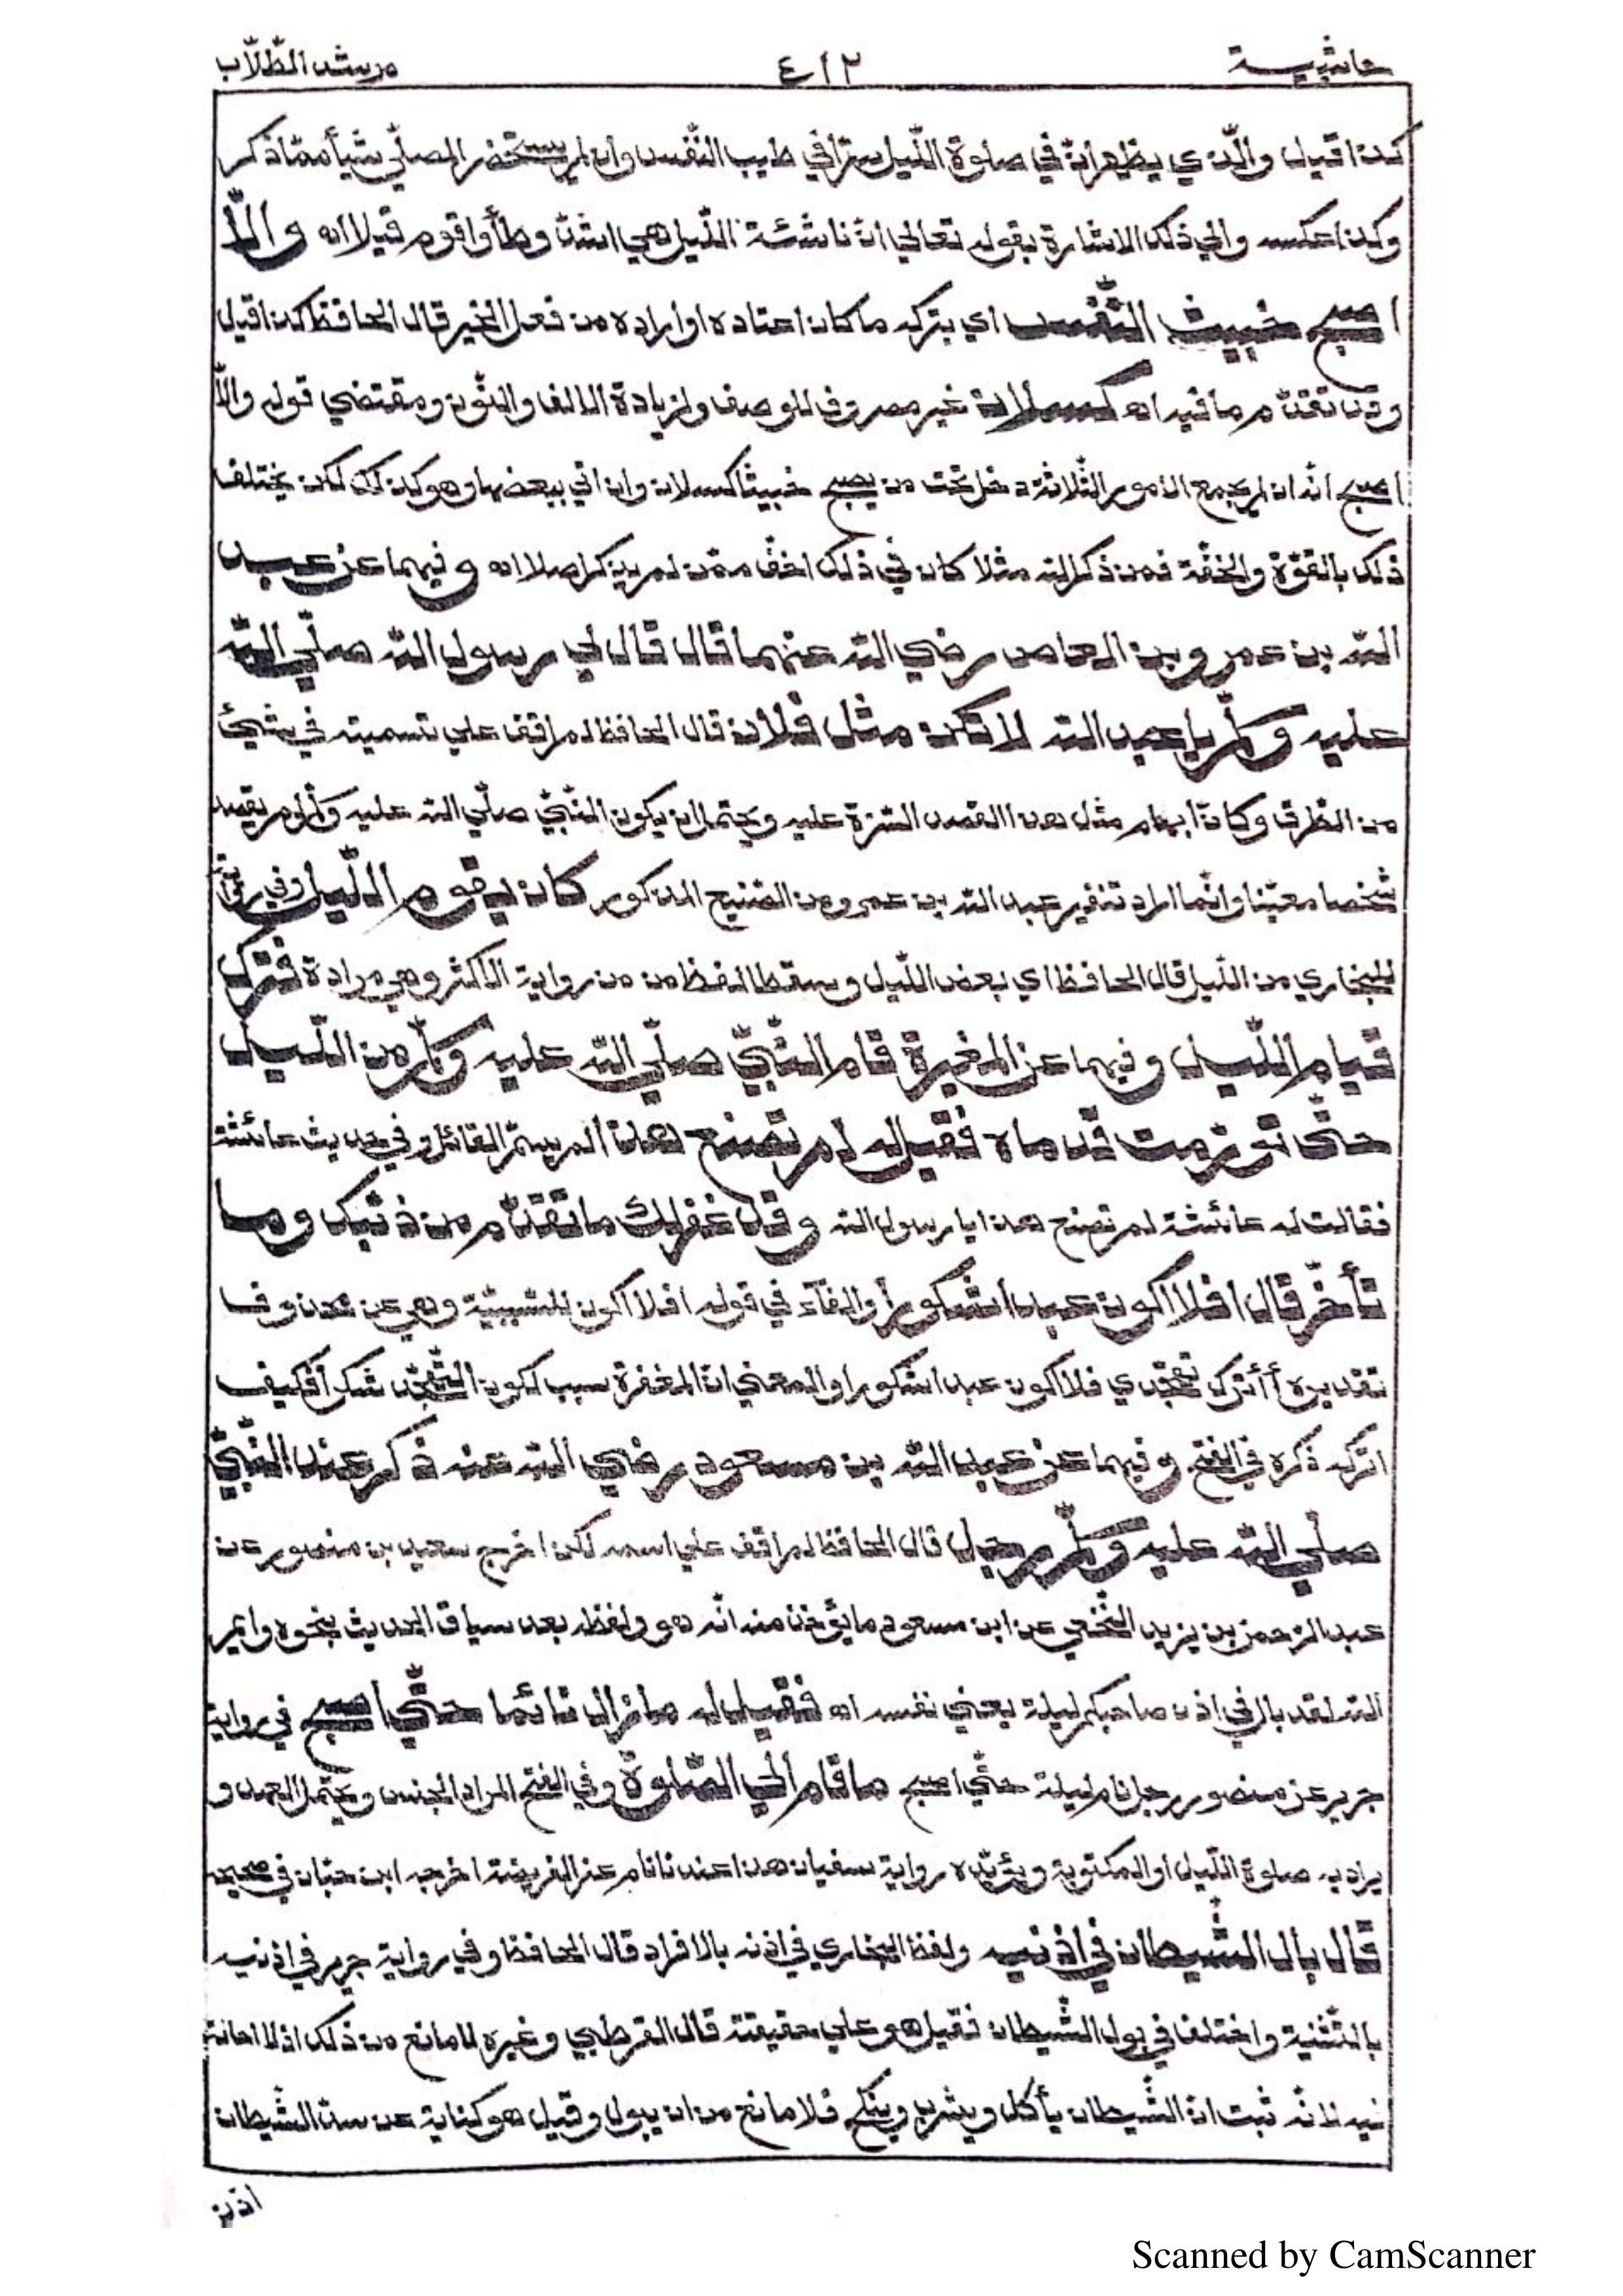 حاشية ٤١٢ مرشد الطّلّاب
كذا قيل والّذي يظهر انّ في صلوة اللّيل سرّا في طيب النّفس وان لم يستحضر المصلّي شيأ ممّا ذكر
وكذا عكسه والي ذلك الاشارة بقوله تعالي انّ ناشئة اللّيل هي اشدّ وطأ واقوم قيلا اه والّا
اصبح خبيث النّفس اي بتركه ما كان اعتاده او اراده من فعل الخير قال الحافظ كذا قيل
وقد تقدّم ما فيه اه كسلان غير مصروف للوصف ولزيادة الالف والنّون ومقتضي قوله والّا
اصبح انّه ان لم يجمع الامور الثّلاثة دخل تحت من يصبح خبيثا كسلان وان اتي ببعضها وهو كذلك لكن يختلف
ذلك بالقوّة والخفّة فمن ذكر الله مثلا كان في ذلك اخفّ ممّن لم يذكر اصلا اه وفيهما عن عبد
الله بن عمرو بن العاص رضي الله عنهما قال قال لي رسول الله صلّي الله
عليه وسلّم يا عبد الله لا تكن مثل فلان قال الحافظ لم اقف علي تسميته في شيئ
من الطّرق وكانّ ابهام مثل هذا القصد السّترة عليه ويحتمل ان يكون النّبيّ صلّي الله عليه وسلّم لم يقصد
شخصا معيّنا وانّما اراد تنفير عبد الله بن عمرو من الصّنيع المذكور كان يقوم اللّيل وفي رواية
للبخاري من اللّيل قال الحافظ اي بعض اللّيل وسقط لفظ من من رواية الاكثر وهي مرادة فترك
قيام اللّيل وفيهما عن المغيرة قام النّبيّ صلّي الله عليه وسلّم من اللّيل
حتّي تورّمت قدماه فقيل له لم تصنع هذا لم يسمّ القائل وفي حديث عائشة
فقالت له عائشة لم تصنع هذا يا رسول الله وقد غفر لك ما تقدّم من ذنبك وما
تأخّر قال افلا اكون عبدا شكورا والفآء في قوله افلا اكون للسّببيّة وهي عن محذوف
تقديره أأترك تهجّدي فلا اكون عبدا شكورا والمعني انّ المغفرة سبب لكون التّهجّد شكرا فكيف
اتركه ذكره في الفتح وفيهما عن عبد الله بن مسعود رضي الله عنه ذكر عند النّبيّ
صلّي الله عليه وسلّم رجل قال الحافظ لم اقف علي اسمه لكن اخرج سعيد بن منصور عن
عبد الرّحمن بن يزيد النّخعي عن ابن مسعود ما يؤخذ منه انّه هو ولفظه بعد سياق الحديث بنحوه وايم
الله لقد بال في اذن صاحبكم ليلة يعني نفسه اه فقيل له ما زال نائما حتّي اصبح في رواية
جرير عن منصور رجل نام ليلة حتّي اصبح ما قام الي الصّلوة وفي الفتح المراد الجنس ويحتمل العهد و
يراد به صلوة اللّيل او المكتوبة ويؤيّده رواية سفيان هذا عندنا نام عن الفريضة اخرجه ابن حبّان في صحيحه
قال بال الشّيطان في اذنيه ولفظ البخاري في اذنه بالافراد قال الحافظ وفي رواية جرير في اذنيه
بالتّثنية واختلف في بول الشّيطان فقيل هو علي حقيقته قال القرطبي وغيره لا مانع من ذلك اذ لا احالة
فيه لانّه ثبت انّ الشّيطان يأكل ويشرب وينكح فلا مانع من ان يبول وقيل هو كناية عن سدّ الشّيطان
اذن
Scanned by CamScanner